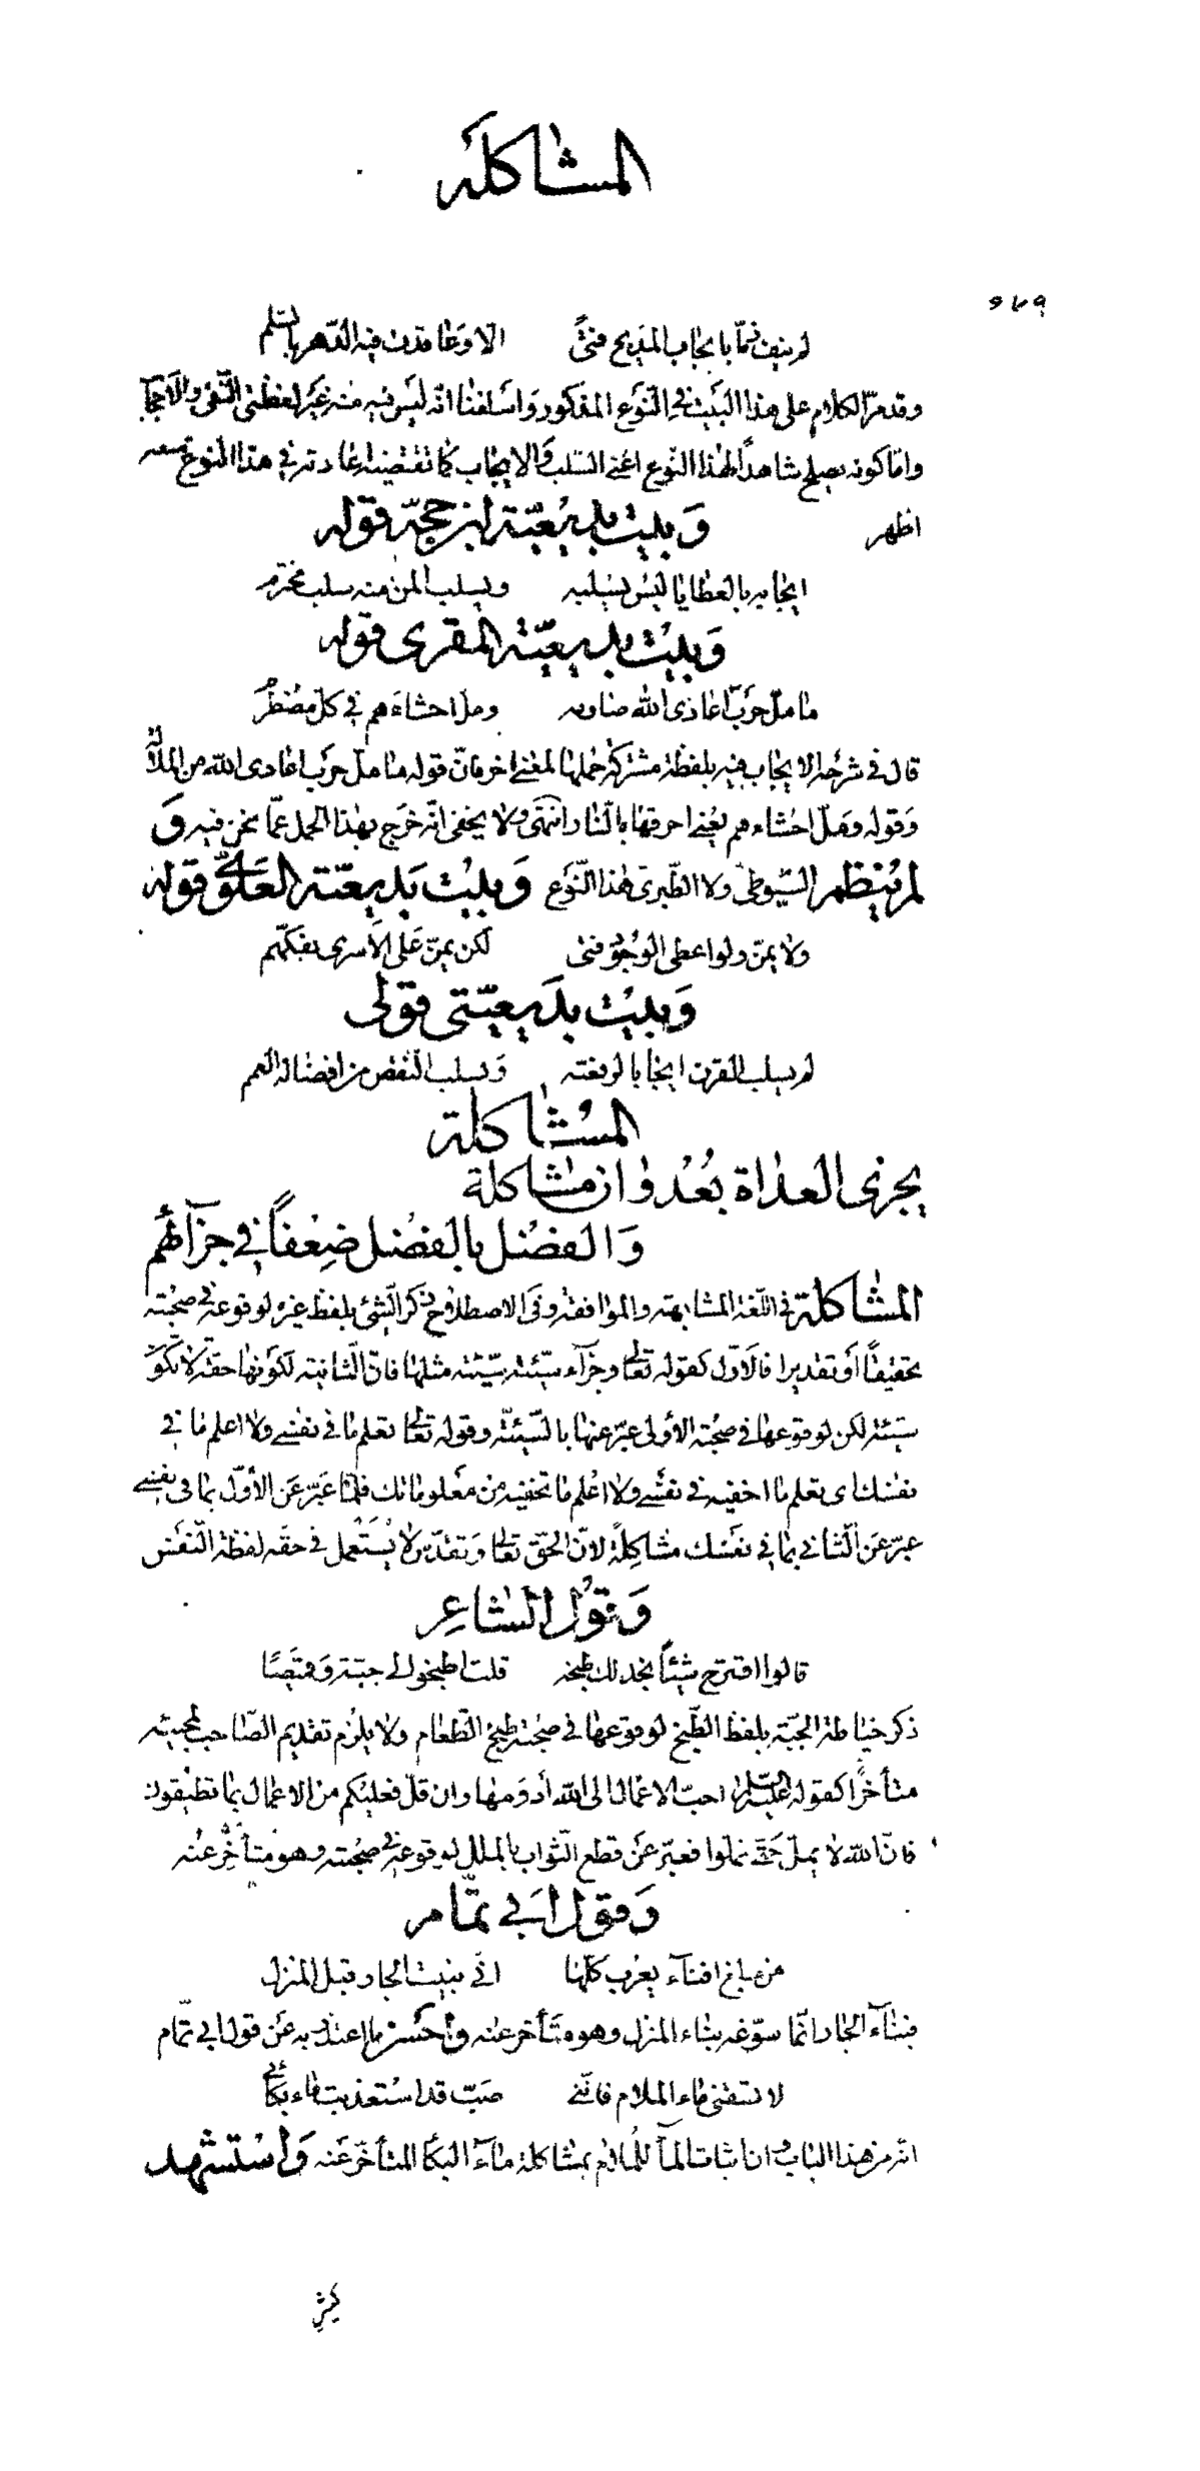 المشاكلة
لم ينف ذمّا بايجاب المديح فتىً الّا وعاقدت فيه الدّهر بالسّلم
وقد مرّ الكلام على هذا البيت في النّوع المذكور واسلفنا انّه ليس فيه منه غير لفظتى النّفى والايجاب
وامّا كونه يصلح شاهداً لهذا النّوع اعنى السّلب والايجاب كما تقتضيه اعادته في هذا النّوع
اظهر
وبيت بديعيّة ابن حجّة قوله
ايجابه بالعطايا ليس يسلبه ويسلب المنّ منه سلب محترم
وبيت بديعيّة المقرى قوله
ما ملّ حرب اعادى الله صارمه وملّ احشاءهم في كلّ مضطرم
قال في شرحه الايجاب فيه بلفظة مشتركة حملها لمعنى اخر فانّ قوله ما ملّ حرب اعادى الله من الملال
وقوله وملّ احشاءهم يعنى احرقها بالنّار انتهى ولا يخفى انّه خرج بهذا الحمل عمّا نحن فيه و
لم ينظم السّيوطى ولا الطّبرى هذا النّوع وبيت بديعيّة العلوىّ قوله
ولا يمنّ ولو اعطى الوجود فتى لكن يمنّ على الأسرى بفكّهم
وبيت بديعيّتى قولى
لم يسلب القرن ايجابا لرفعته ويسلب النّقص من افضاله العمم
المشاكلة
يجزى العداة بعدوان مشاكلة
والفضل بالفضل ضعفاً في جزآئهم
المشاكلة في اللّغة المشابهة والموافقة وفى الاصطلاح ذكر الشّئ بلفظ غيره لوقوعه في صحبته
تحقيقاً أو تقديرا فالاوّل كقوله تعالى وجزآء سيّئة سيّئة مثلها فانّ الثّانية لكونها حقّة لا تكون
سيّئة لكن لوقوعها في صحبة الأولى عبّر عنها بالسّيّئة وقوله تعالى تعلم ما في نفسى ولا اعلم ما في
نفسك اى تعلم ما اخفيه في نفسى ولا اعلم ما تخفيه من معلوماتك فلمّا عبّر عن الأوّل بما في نفسى
عبّر عن الثّانى بما في نفسك مشاكلةً لانّ الحقّ تعالى وتقدّس لا يستعمل في حقّه لفظة النّفس
وقول الشاعر
قالوا اقترح شيئاً نجد لك طبخه قلت اطبخوا لى جبّة وقميصًا
ذكر خياطة الجبّة بلفظ الطّبخ لوقوعها في صحبة طبخ الطّعام ولا يلزم تقديم الصّاحب لمجيئه
متأخراً كقوله عليه السّلام احبّ الاعمال الى الله أدومها وان قلّ فعليكم من الاعمال بما تطيقون
فانّ الله لا يملّ حتّى تملّوا فعبّر عن قطع الثّواب بالملل لوقوعه في صحبته وهو متأخّر عنه
وقول ابى تمّام
من مبلغ افنآء يعرب كلّها انّى بنيت الجار قبل المنزل
فبنآء الجار انّما سوّغه بناء المنزل وهو متأخر عنه وأحسن ما اعتذر به عن قول ابى تمّام
لا تسقنى ماء الملام فانّنى صبّ قد استعذبت ماء بكائى
انّه من هذا الباب وانّ اثبات المآ للملام بمشاكلة مآء البكآ المتأخّر عنه واستشهد